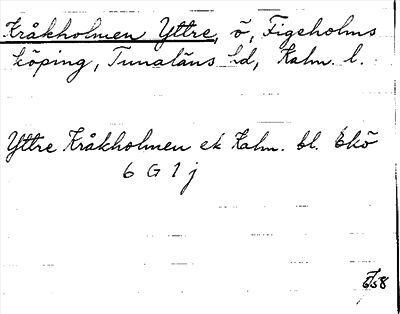 Kråkholmen Yttre, ö, Figeholms
köping, Tunaläns hd, Kalm. l.
Yttre Kråkholmen ek Kalm. bl. Ekö
6 G 1 j